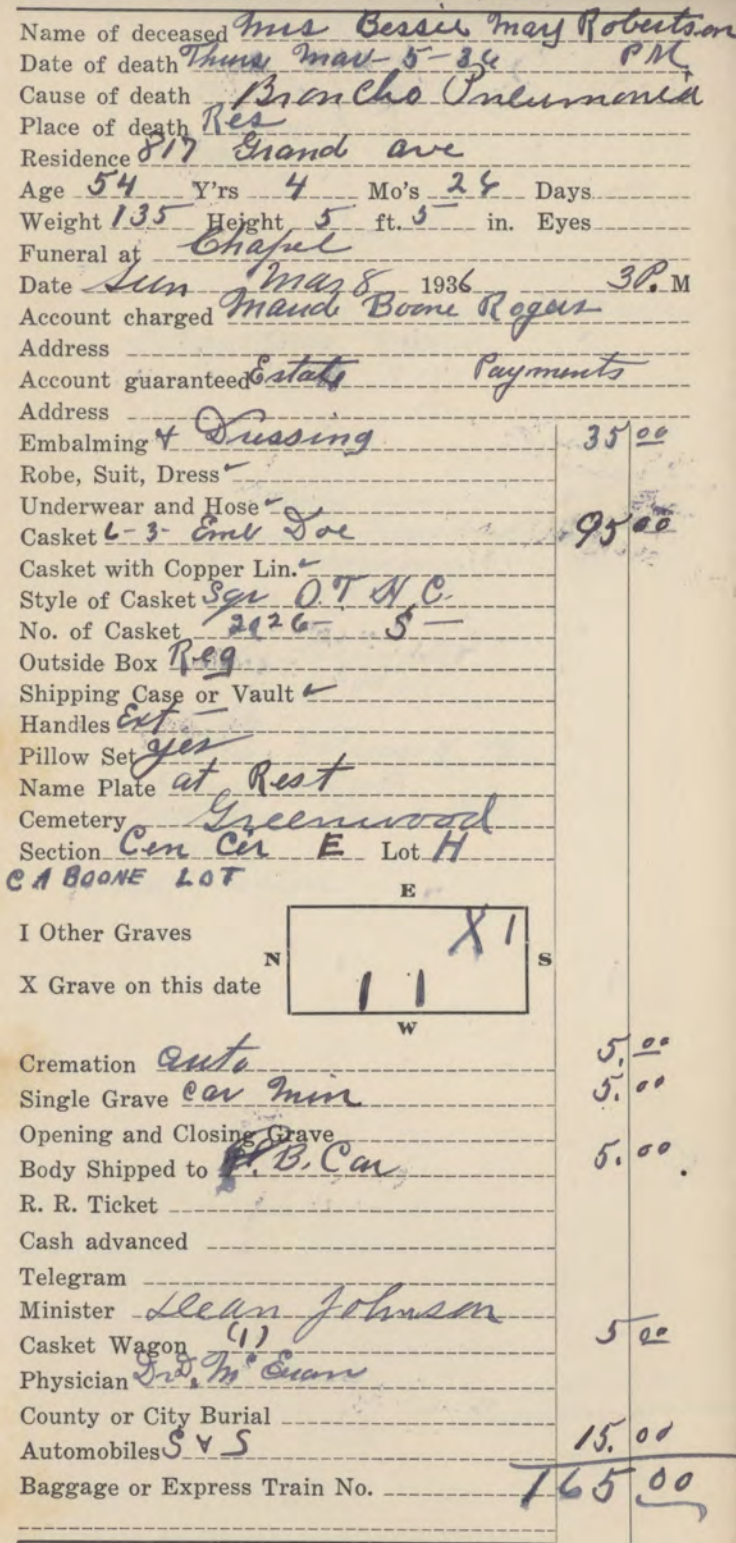 Name of deceased Mrs Bessie May Robertson
Date of death Thurs Mar - 5 - 36 PM
Cause of death Broncho Pneumonia
Place of death Res
Residence 817 Grand ave
Age 54 Y'rs 4 Mo's 28 Days
Weight 135 Height 5 ft. 5 in. Eyes
Funeral at Chapel
Date Sun Mar 8 1936 3 P. M
Account charged Maude Boone Rogers
Address
Account guaranteed Estate Payments
Address
Embalming & Dressing 35 00
Robe, Suit, Dress
Underwear and Hose
Casket 6-3- Emb Doe 95 00
Casket with Copper Lin.
Style of Casket Sqr O.T N C.
No. of Casket 2926 - S -
Outside Box Reg
Shipping Case or Vault
Handles Ext -
Pillow Set yes
Name Plate at Rest
Cemetery Greenwood
Section Cen Cir E Lot H
C A BOONE LOT
E
I Other Graves X I
N S
X Grave on this date I I
W
Cremation auto 5. 00
Single Grave car min 5. 00
Opening and Closing Grave
Body Shipped to P. B. Car 5. 00
R. R. Ticket
Cash advanced
Telegram
Minister Dean Johnson
Casket Wagon (1) 5 00
Physician Dr D. McEuan
County or City Burial
Automobiles S & S 15. 00
Baggage or Express Train No. 165 00